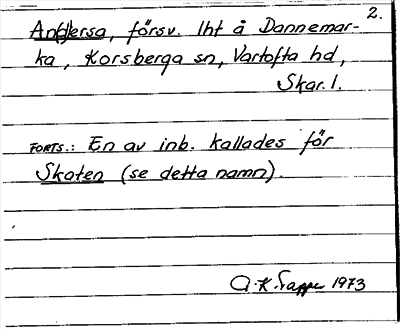 2.
An(d)ersa, försv. lht å Dannemar-
ka, Korsberga sn, Vartofta hd,
Skar. l.
FORTS.: En av inb. kallades för
Skaten (se detta namn).
A.K. Trapper 1973